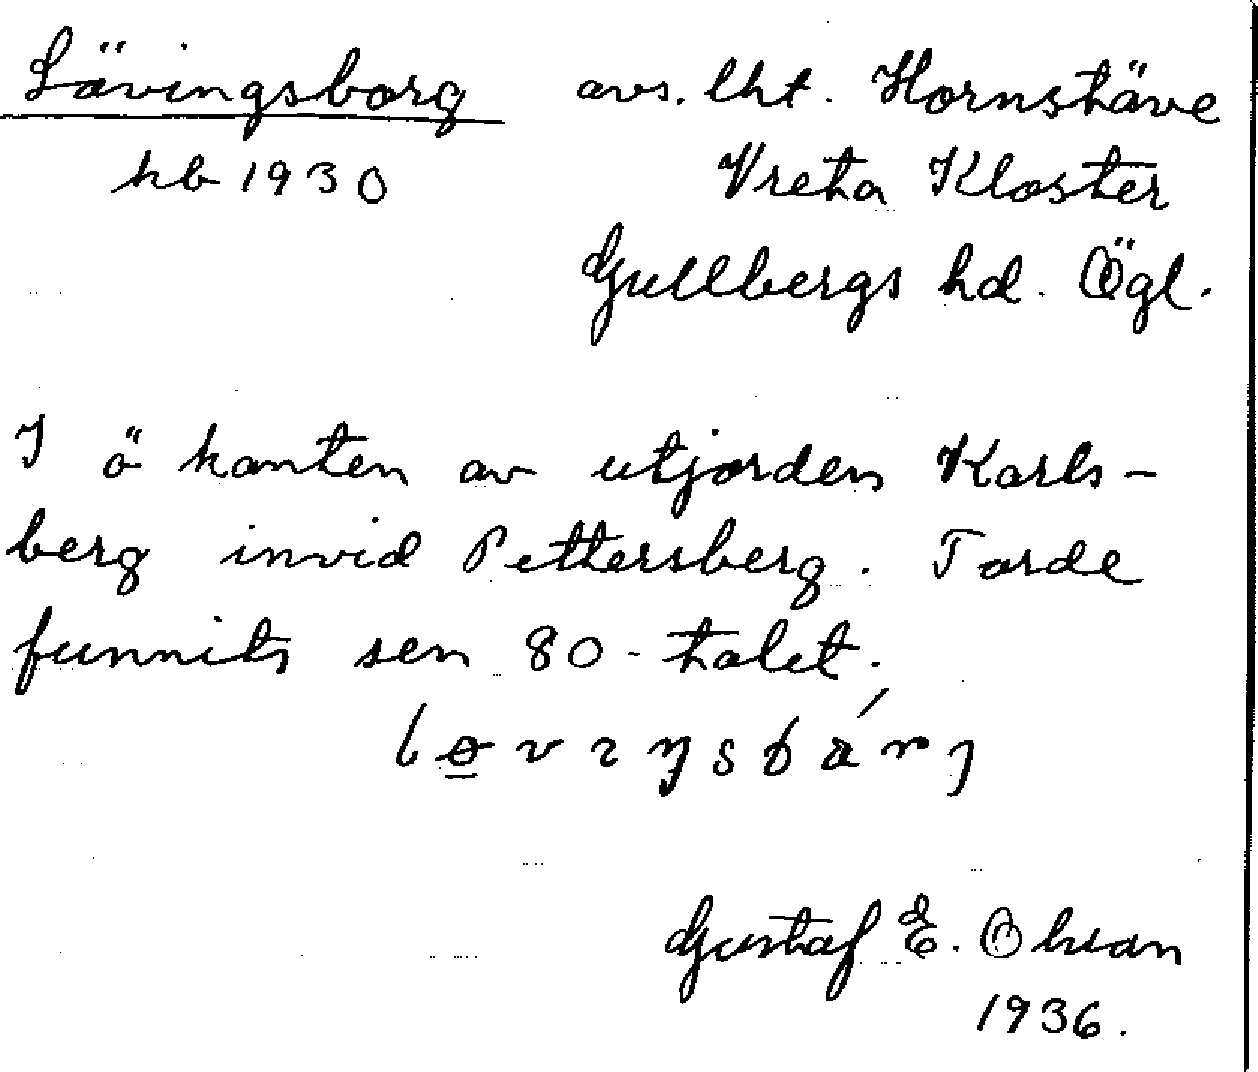 Lövingsborg avs. lht. Hornstäve
hb 1930 Vreta Kloster
Gullbergs hd. Ögl.
I ö kanten av utjorden Karls-
berg invid Pettersberg. Torde
funnits sen 80-talet.
Gustaf E. Olson
1936.